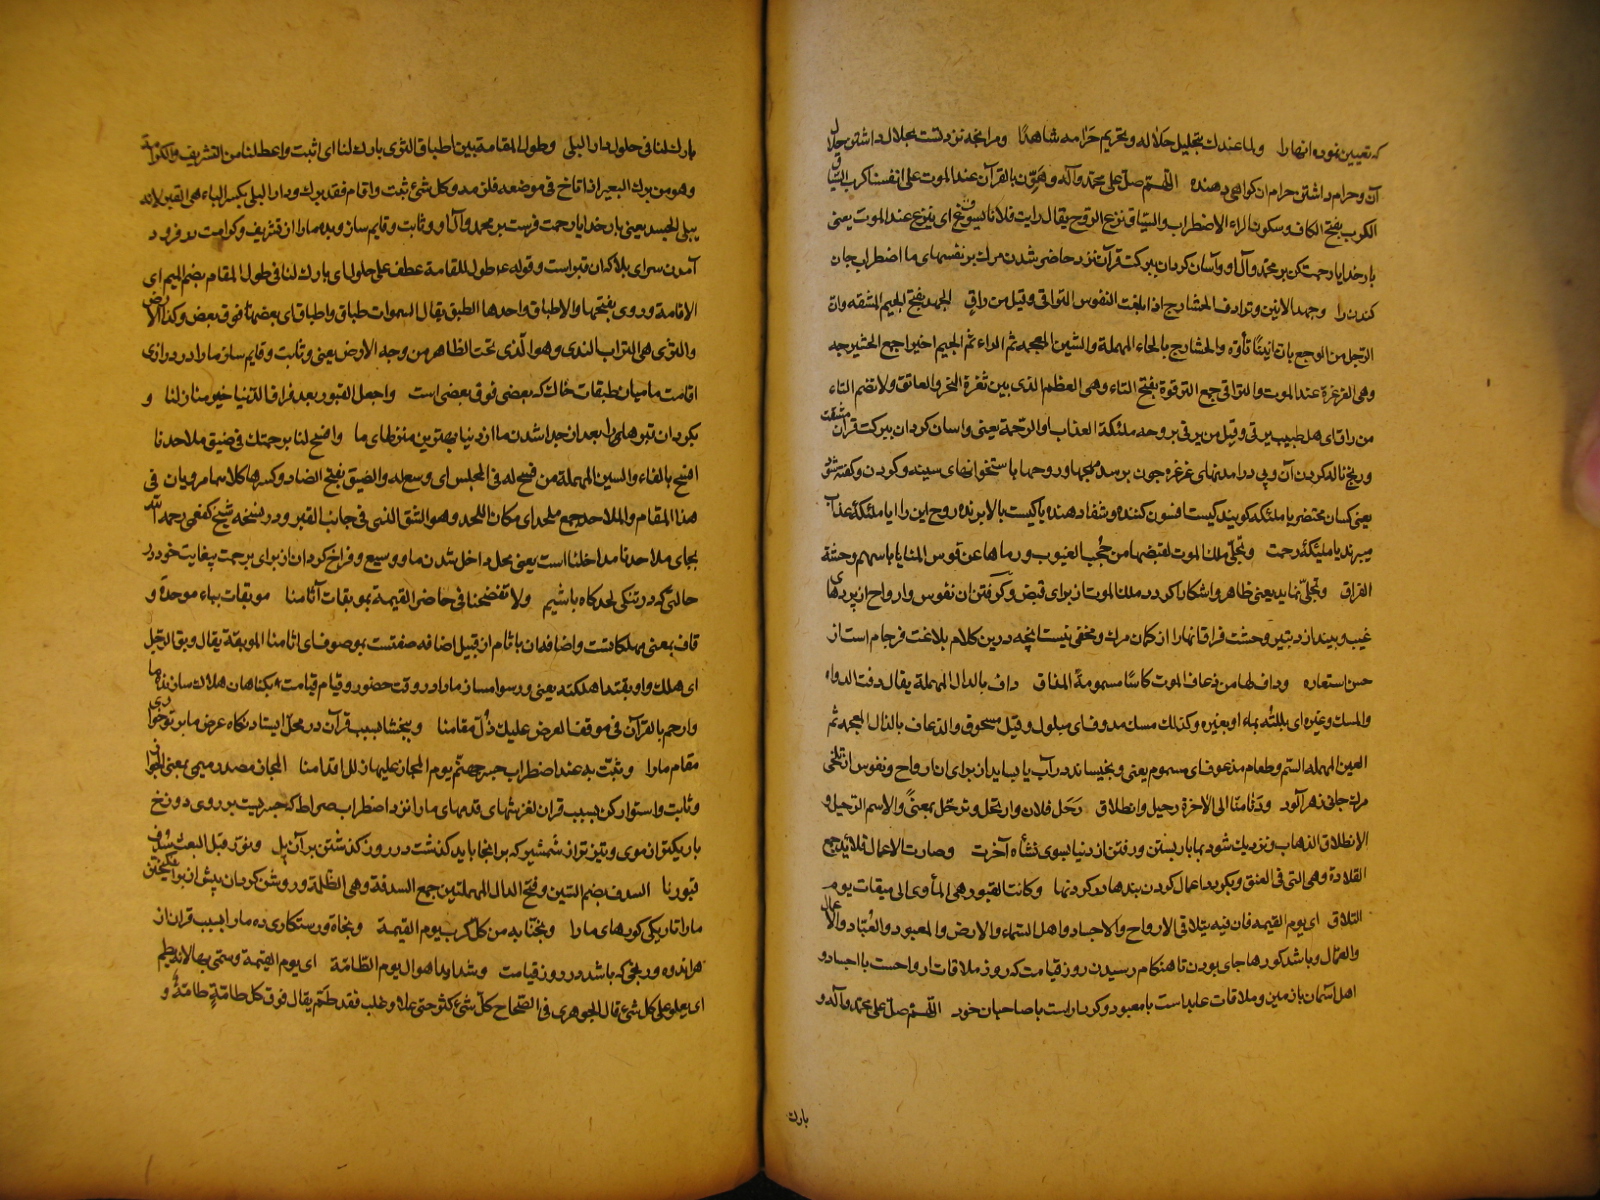 که تعیین نموده انها را ولما عندك بتحلیل حلاله وتحریم حرامه شاهدا ومر آنچه نزد تست بحلال داشتن حلال
آن وحرام داشتن حرام ان کواهی دهنده اللهم صل علی محمد وآله وهون بالقرآن عند الموت علی انفسنا کرب السیاق
الکرب بفتح الکاف وسکون الراء الاضطراب والسیاق نزع الروح یقال رایت فلانا یسوق ای ینزع عند الموت یعنی
بار خدایا رحمت کن بر محمد وآل او واسان کردان ببرکت قرآن نزد حاضر شدن مرك بر نفسهای ما اضطراب جان
کندن را وجهد الانین وترادف الحشارج اذا بلغت النفوس التراقی وقیل من راق الجهد بفتح الجیم المشقه وان
الرجل من الوجع یان انینا تأوه والحشارج بالحاء المهملة والشین المعجمه ثم الراء ثم الجیم اخیرا جمع الحشرجه
وهی الغرغرة عند الموت والتراقی جمع الترقوة بفتح التاء وهی العظم الذی بین ثغرة النحر والعاتق ولا تضم التاء
من راق ای هل طبیب یرقی وقیل من یرقی بروحه ملئکة العذاب او الرحمة یعنی واسان کردان ببرکت قرآن مشقت
ورنج ناله کردن آن وپی درامدنهای غرغره چون برسد روحها باستخوانهای سینه وکردن وکفته شود
یعنی کسان محتضر یا ملئکه کویند کیست افسون کننده وشفا دهنده یا کیست بالا برنده روح این را ایا ملئکۀ عذاب
میبرند یا ملیئکۀ رحمت وتجلی ملك الموت لقبضها من حجب الغیوب ورماها عن قوس المنایا باسهم وحشة
الفراق وتجلی نماید یعنی ظاهر واشکارا کردد ملك الموت از برای قبض وکرفتن ان نفوس وارواح از پردهای
غیب وبیندازد بتیر وحشت فراق انها را از کمان مرك ومخفی نیست انچه درین کلام بلاغت فرجام است از
حسن استعاره وداف لها من ذعاف الموت کاسا مسمومة المذاق داف بالدال المهملة یقال دفت الدواء
والمسك وغیره ای بللته بماء او بغیره وکذلك مسك مدوف ای مبلول وقیل مسحوق والذعاف بالذال المعجمه ثم
العین المهمله السم وطعام مذعوف ای مسموم یعنی وبخیساند در آب یا بیاید از برای ان ارواح ونفوس از تلخی
مرك جامی زهر آلود ودنا منا الی الاخرة رحیل وانطلاق رحل فلان وارتحل وترحل بمعنی والاسم الرحیل و
الانطلاق الذهاب ونزدیك شود بما بار بستن ورفتن از دنیا بسوی نشأه آخرت وصارت الاعمال قلائد جمع
القلادة وهی التی فی العنق وبکردد اعمال کردن بندها در کردنها وکانت القبور هی المأوی الی میقات یوم
التلاق ای یوم القیمه فان فیه یتلاقی الارواح والاجساد واهل السماء والارض والمعبود والعباد والاعمال
والعمال وباشد کورها جای بودن تا هنکام رسیدن روز قیامت که روز ملاقات ارواحست با اجساد و
اهل آسمان با زمین وملاقات عابدست با معبود وکردارست با صاحبان خود اللهم صل علی محمد وآله و
بارك
بارك لنا فی حلول دار البلی وطول المقامة بین اطباق الثری بارك لنا ای اثبت واعط لنا من التشریف والکرامة
وهو من برك البعیر اذا ناخ فی موضعه فلزمه وکل شئ ثبت واقام فقد برك ودار البلی بکسر الباء هی القبر لانه
یبلی الجسد یعنی بار خدایا رحمت فرست بر محمد وآل او وثابت وقایم ساز وبده مارا از تشریف وکرامت در فرود
آمدن سرای بلا که ان قبر است وقوله ع وطول المقامة عطف علی حلول ای بارك لنا فی طول المقام بضم المیم ای
الاقامة وروی بفتحها والاطباق واحدها الطبق یقال السموات طباق واطباق ای بعضها فوق بعض وکذا الارض
والثری هی التراب الندی وهو الذی تحت الظاهر من وجه الارض یعنی وثابت وقایم ساز مارا در درازی
اقامت ما میان طبقات خاك که بعضی فوق بعضی است واجعل القبور بعد فراق الدنیا خیر منازلنا و
بکردان قبرهای را بعد از جدا شدن ما از دنیا بهترین منزلهای ما وافسح لنا برحمتك فی ضیق ملاحدنا
افسح بالفاء والسین المهملة من فسح له فی المجلس ای وسع له والضیق بفتح الضاد وکسرها کلاهما مرویان فی
هذا المقام والملاحد جمع ملحد ای مکان اللحد وهو الشق الذی فی جانب القبر ودر نسخه شیخ کفعمی رحمه الله
بجای ملاحدنا مداخلنا است یعنی محل داخل شدن ما ووسیع وفراخ کردان از برای برحمت بیغایت خود در
حالتی که در تنکی لحدکاه باشیم ولا تفضحنا فی حاضر القیمة بموبقات آثامنا موبقات بباء موحده و
قاف بمعنی مهلکاتست واضافه ان باثام از قبیل اضافه صفتست بموصوف ای اثامنا الموبقة یقال وبق الرجل
ای هلك واوبقته اهلکته یعنی ورسوا مساز مارا در وقت حضور وقیام قیامت بکناهان هلاك سازنده ما
وارحم بالقرآن فی موقف العرض علیك ذل مقامنا وببخشا بسبب قرآن در محل ایستادنکاه عرض ما بر تو خواری
مقام مارا وثبت به عند اضطراب جسر جهنم یوم المجاز علیها زلل اقدامنا المجاز مصدر میمی بمعنی الجواز
وثابت واستوار کن بسبب قران لغزشهای قدمهای مارا نزد اضطراب صراط که جسریست بر روی دوزخ
باریکتر از موی وتیزتر از شمشیر که بر انجا باید کذشت در روز کذشتن بر آن پل ونور قبل البعث سدف
قبورنا السدف بضم السین وفتح الدال المهملتین جمع السدفة وهی الظلمة وروشن کردان پیش از برانکیختن
مارا تاریکی کورهای مارا ونجنا به من کل کرب یوم القیمة ونجاة ورستکاری ده مارا بسبب قران از
هر اندوه ورنجی که باشد در روز قیامت وشداید اهوال یوم الطامة ای یوم القیمة وسمی بها لانه یطم
ای یعلو علی کل شئ قال الجوهری فی الصحاح کل شئ کثر حتی علا وغلب فقد طم یقال فوق کل طامة طامة و